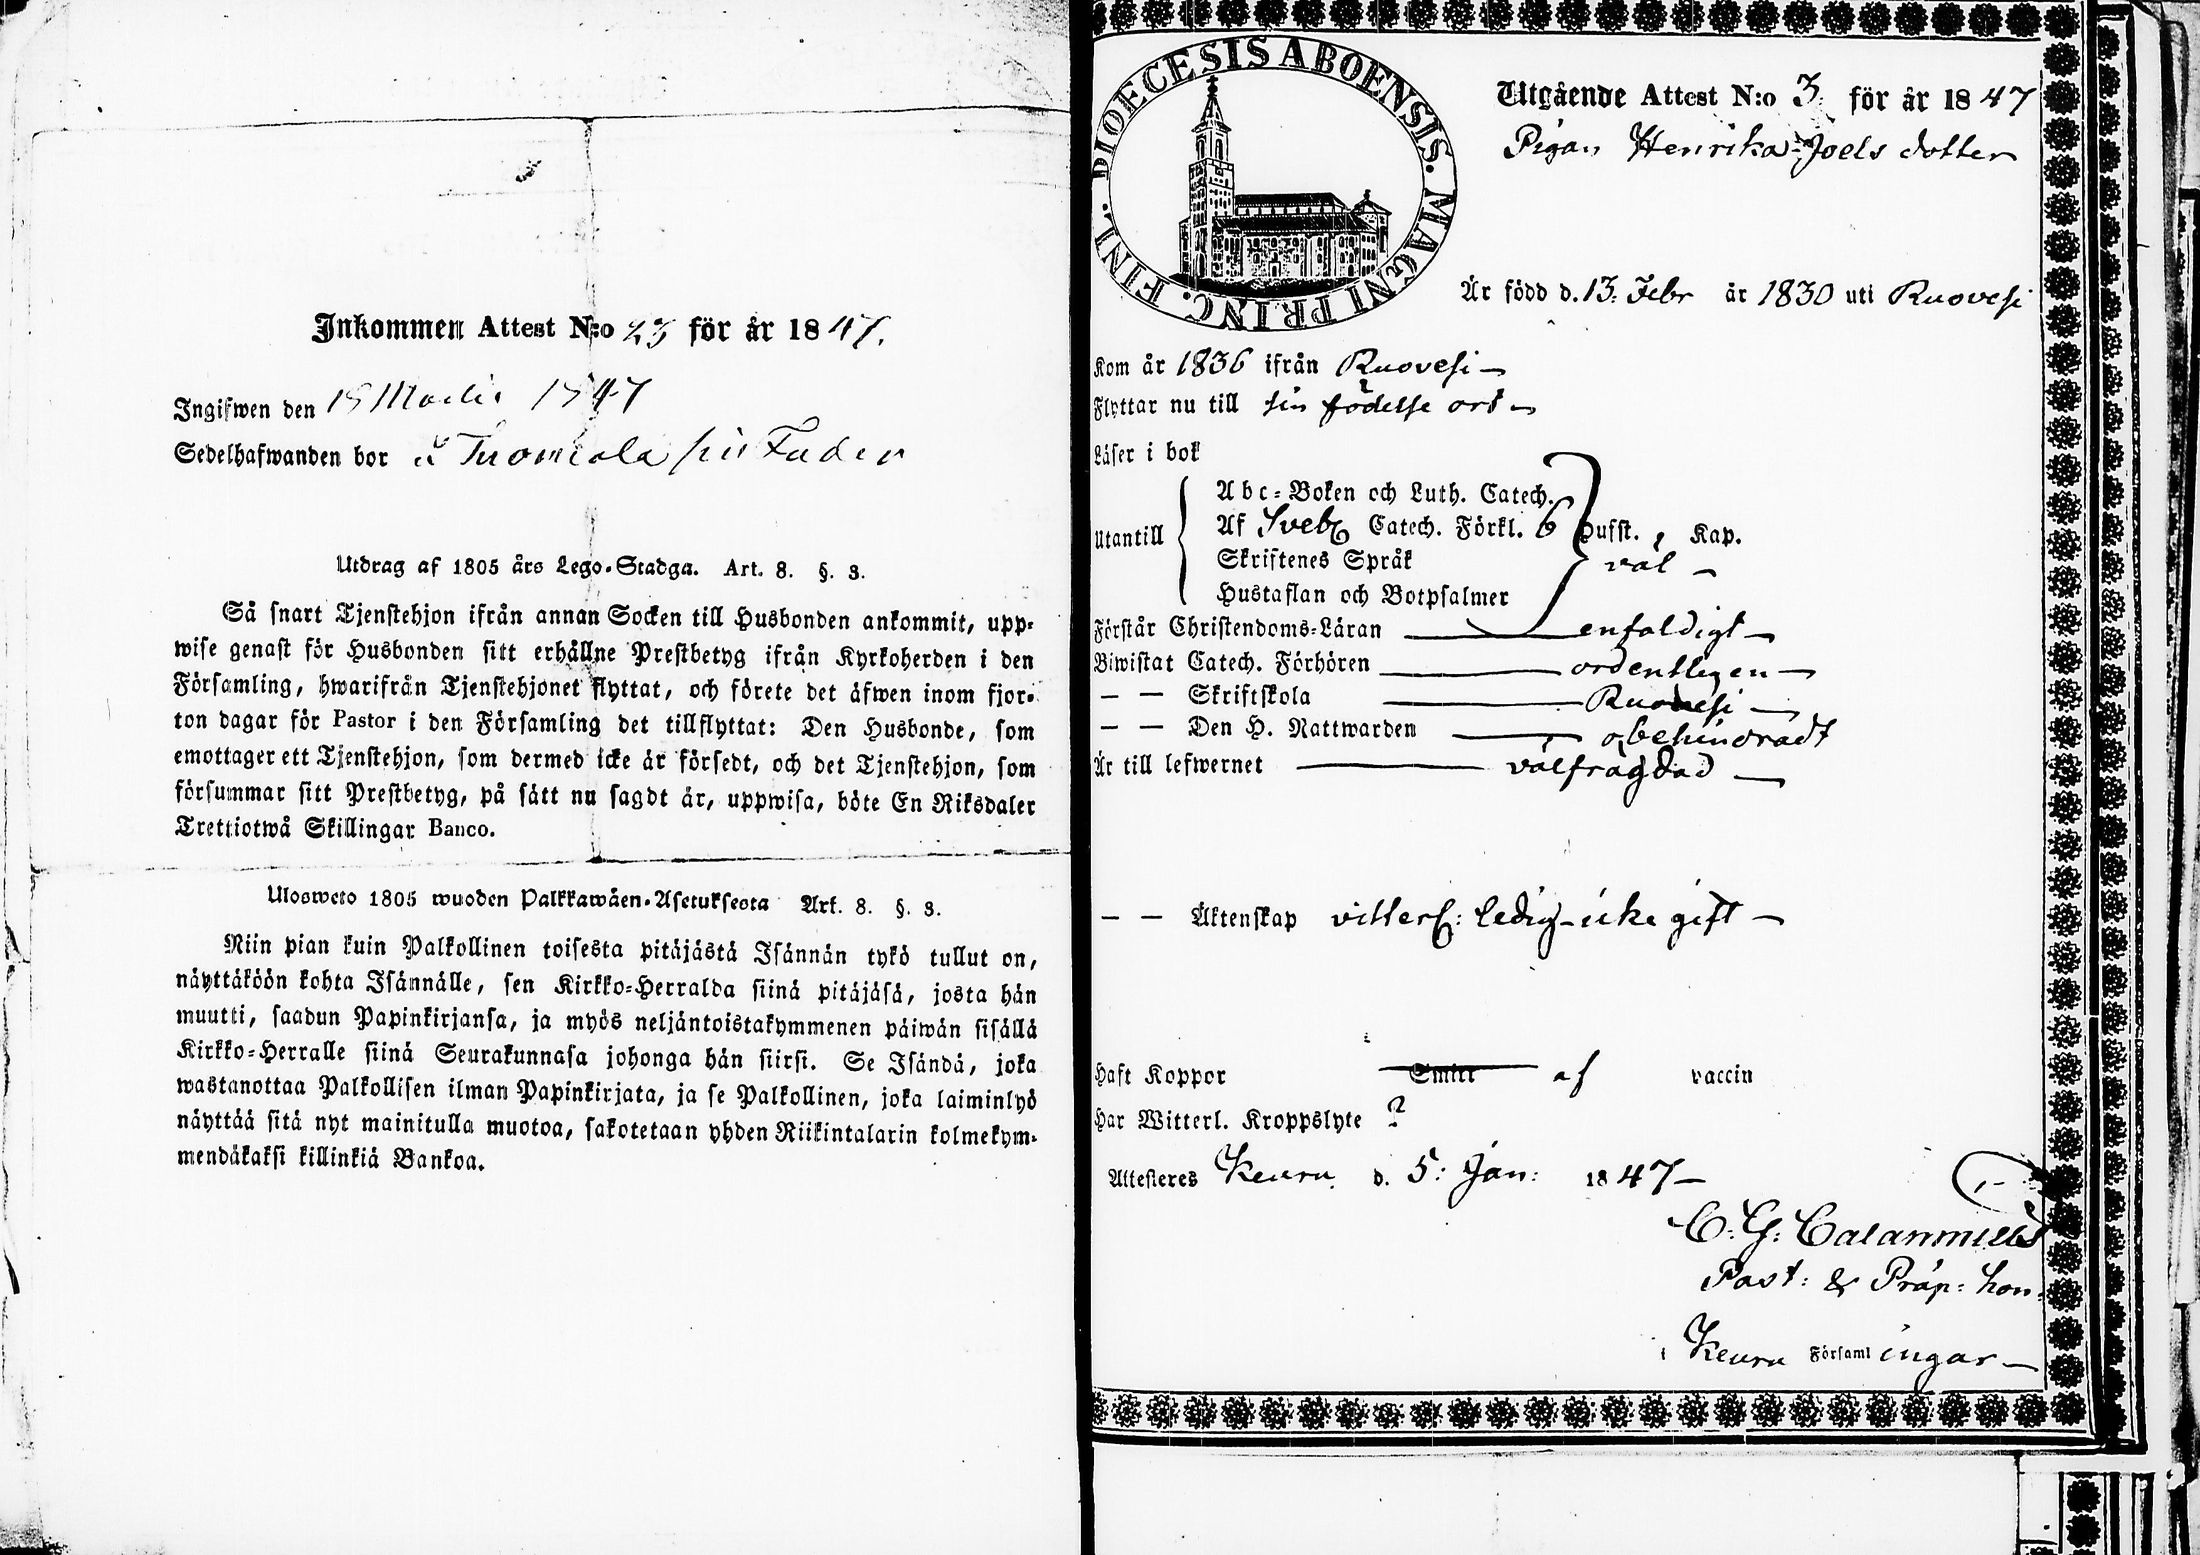 Inkommen Attest N:o 23 för år 1847.
Ingifwen den Martii 1847
Sedelhafwanden bor i Tuomiala sin Fader
Utdrag af 1805 års Lego-Stadga. Art. 8. §. 3.
Så snart Tjenstehjon ifrån annan Socken till Husbonden ankommit, upp-
wise genast för Husbonden sitt erhållne Prestbetyg ifrån Kyrkoherden i den
Församling, hwarifrån Tjenstehjonet flyttat, och förete det äfwen inom fjor-
ton dagar för Pastor i den Församling det tillflyttat: Den Husbonde, som
emottager ett Tjenstehjon, som dermed icke är försedt, och det Tjenstehjon, som
försummar sitt Prestbetyg, på sätt nu sagdt är, uppwisa, böte En Riksdaler
Trettiotwå Skillingar Banco.
Ulosweto 1805 wuoden Palkkawäen-Asetuksesta Art. 8. §. 3.
Niin pian kuin Palkollinen toisesta pitäjästä Isännän tykö tullut on,
näyttäköön kohta Isännälle, sen Kirkko-Herralda siinä pitäjäsä, josta hän
muutti, saadun Papinkirjansa, ja myös neljäntoistakymmenen päiwän sisällä
Kirkko-Herralle siinä Seurakunnasa johonga hän siirsi. Se Isändä, joka
wastanottaa Palkollisen ilman Papinkirjata, ja se Palkollinen, joka laiminlyö
näyttää sitä nyt mainitulla muotoa, sakotetaan yhden Riikintalarin kolmekym-
mendäkaksi killinkiä Bankoa.
DIOECESIS ABOENSIS. MAGNI PRINC. FINL.
Utgående Attest N:o 3. för år 1847
Pigan Henrika Joels dotter
Är född d. 13. Febr år 1830 uti Ruovesi
Kom år 1836 ifrån Ruovesi
Flyttar nu till sin födelse ort
Läser i bok
Abc-Boken och Luth. Catech.
Utantill Af Sveb Catech. Förkl. 6 Hufst. Kap.
Skriftenes Språk väl
Hustaflan och Botpsalmer
Förstår Christendoms-Läran enfaldigt
Biwistat Catech. Förhören ordentligen
— — Skriftskola Ruovesi
— — Den H. Nattwarden obehindradt
Är till lefwernet välfrägdad
— — Äktenskap vitterl: ledig icke gift
Haft Koppor Smitt af vaccin
Har Witterl. Kroppslyte ?
Attesteres Keuru d. 5: Jan: 1847
C. G. Calamnius
Past: & Präp: hon:
i Keuru Församlingar